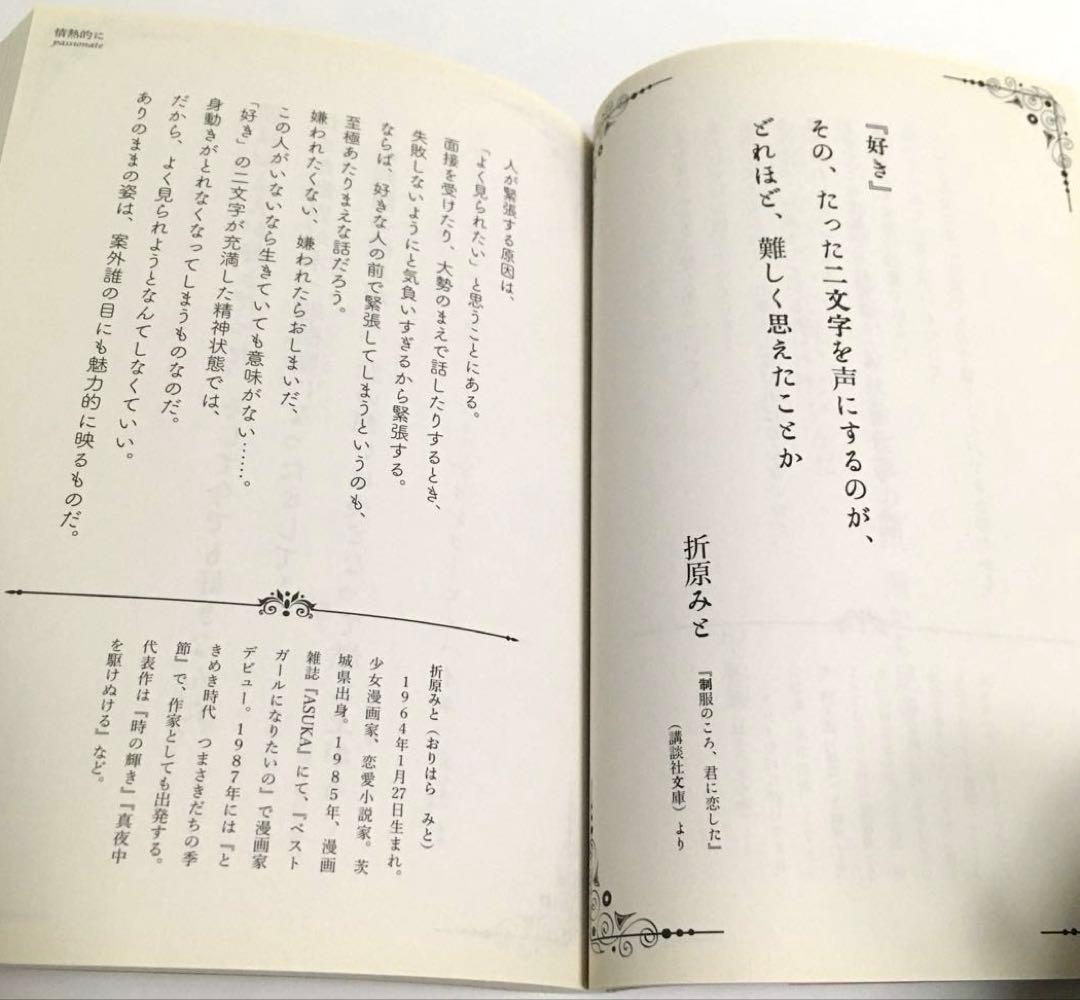 『好き』
その、たった二文字を声にするのが、
どれほど、難しく思えたことか
折原みと
『制服のころ、君に恋した』
（講談社文庫）より
情熱的に
passionate
人が緊張する原因は、
「よく見られたい」と思うことにある。
面接を受けたり、大勢のまえで話したりするとき、
失敗しないようにと気負いすぎるから緊張する。
ならば、好きな人の前で緊張してしまうというのも、
至極あたりまえな話だろう。
嫌われたくない、嫌われたらおしまいだ、
この人がいないなら生きていても意味がない……。
「好き」の二文字が充満した精神状態では、
身動きがとれなくなってしまうものなのだ。
だから、よく見られようとなんてしなくていい。
ありのままの姿は、案外誰の目にも魅力的に映るものだ。
折原みと（おりはら　みと）
1964年1月27日生まれ。
少女漫画家、恋愛小説家。茨
城県出身。1985年、漫画
雑誌『ASUKA』にて、『ベスト
ガールになりたいの』で漫画家
デビュー。1987年には『と
きめき時代　つまさきだちの季
節』で、作家としても出発する。
代表作は『時の輝き』『真夜中
を駆けぬける』など。